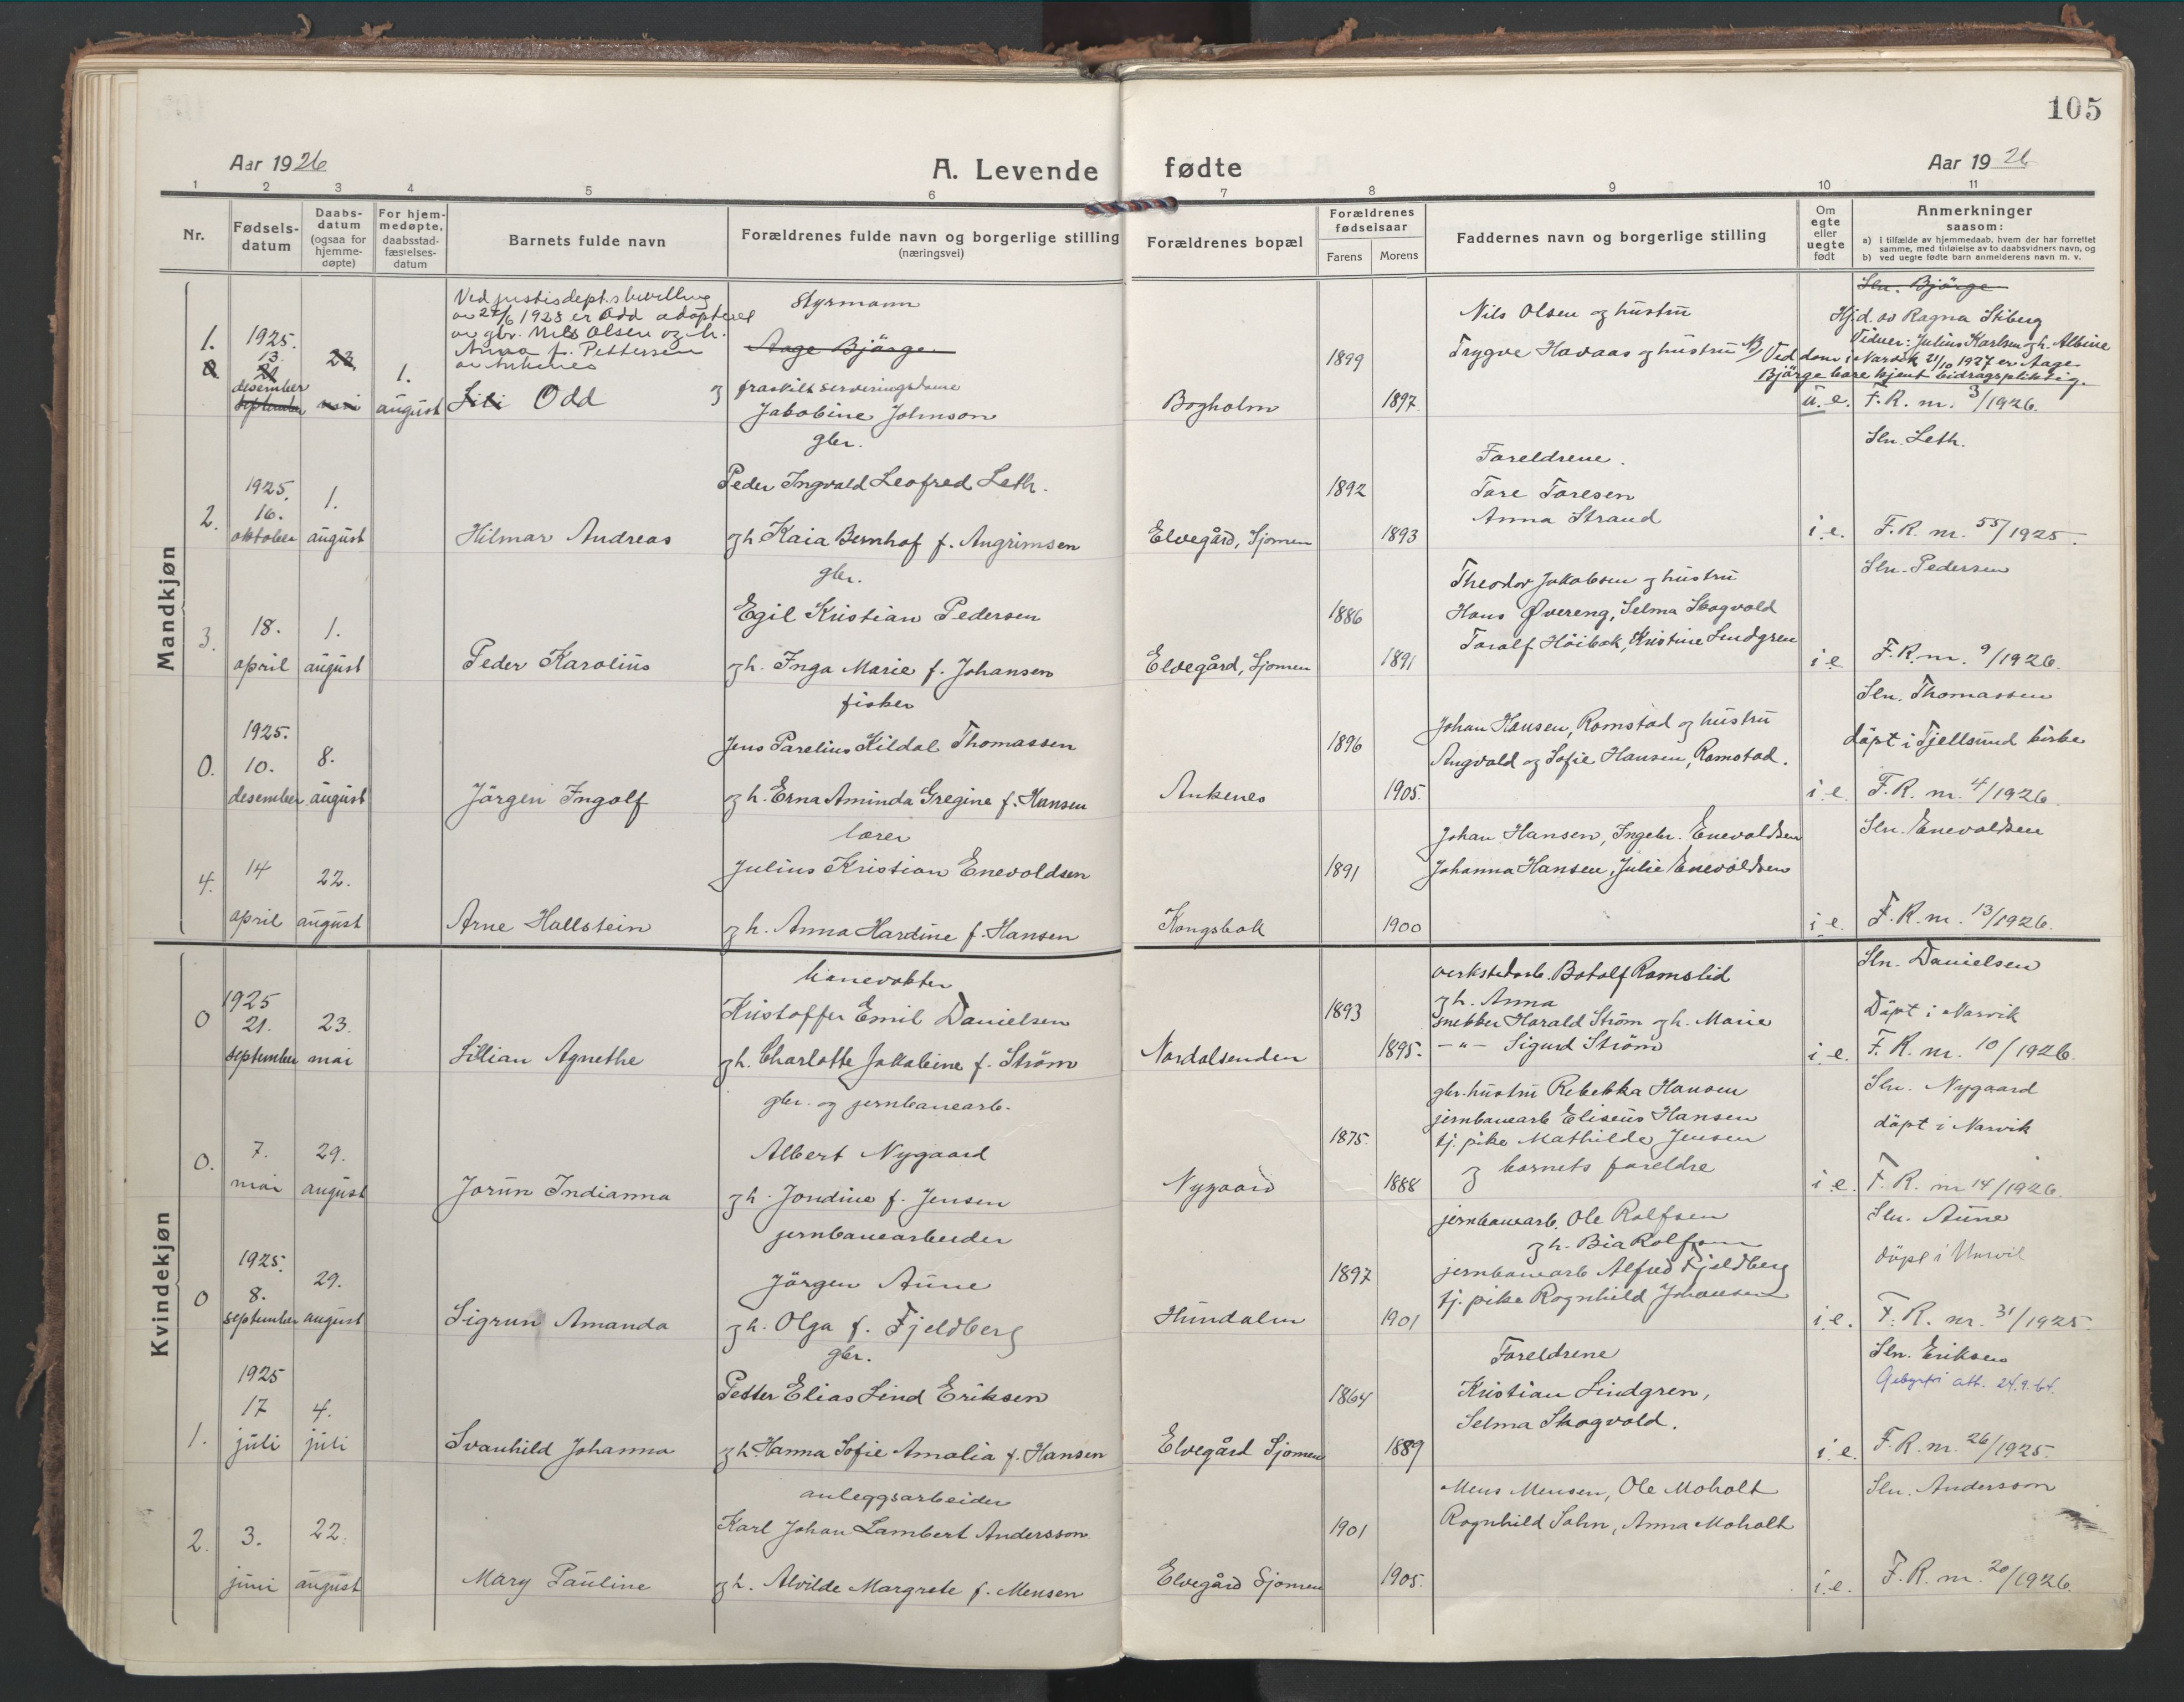 105
Aar 1926
A. Levende fødte
Aar 1926
1 2 3 4 5 6 7 8 9 10 11
Nr.
Fødsels-
datum
Daabs-
datum
(ogsaa for
hjemme-
døpte)
For hjem-
medøpte,
daabsstad-
fæstelses-
datum
Barnets fulde navn
Forældrenes fulde navn og borgerlige stilling
(næringsvei)
Forældrenes bopæl
Forældrenes
fødselsaar
Farens
Morens
Faddernes navn og borgerlige stilling
Om
egte
eller
uegte
født
Anmerkninger
saasom:
a) i tilfælde av hjemmedaab, hvem der har forrettet
samme, med tilføielse av to daabsvidners navn, og
b) ved uegte fødte barn anmelderens navn m. v.
Mandkjøn
1.
0.
1925.
13.
21
desember
september
23.
mai
1.
august
Ved justisdept.s bevilling
av 27/6 1928 er Odd adopteret
av gbr. Nils Olsen og h.
Anna f. Pettersen
av Ankenes
Lili Odd
Styrmann
Aage Bjørge
og fraskilt serveringsdame
Jakobine Johnson
Bogholm
1899
1897.
Nils Olsen og hustru
Trygve Havaas og hustru
u. e.
Sln. Bjørge
Hj.d. av Ragna Stiberg
Vidner: Julius Karlsen og h. Albine
NB Ved dom i Narvik 21/10 1927 er Aage
Bjørge bare kjent bidragspliktig.
F. R. nr. 3/1926.
2.
1925.
16.
oktober
1.
august
Hilmar Andreas
gbr.
Peder Ingvald Leofred Leth.
og h. Kaia Bernhof f. Angrimsen
Elvegård, Sjomen
1892
1893
Foreldrene.
Tore Toresen
Anna Strand
i. e.
Sln. Leth.
F. R. nr. 55/1925.
3.
18.
april
1.
august
Peder Karolius
gbr.
Egil Kristian Pedersen
og h. Inga Marie f. Johansen
Elvegård, Sjomen
1886
1891
Theodor Jakobsen og hustru
Hans Øvereng, Selma Skogvold
Toralf Höibak, Kristine Lindgren
i. e.
Sln. Pedersen
F. R. nr. 9/1926.
0.
1925.
10.
desember
8.
august
Jörgen Ingolf
fisker
Jens Parelius Kildal Thomassen
og h. Erna Aminda Gregine f. Hansen
Ankenes
1896
1905.
Johan Hansen, Ramstad og hustru
Angvald og Sofie Hansen, Ramstad.
i. e.
Sln. Thomassen
döpt i Tjellsund kirke
F. R. nr. 4/1926.
4.
14
april
22.
august
Arne Hallstein
lærer
Julius Kristian Enevoldsen
og h. Anna Hardine f. Hansen
Kongsbak
1891
1900
Johan Hansen, Ingebr. Enevoldsen
Johanna Hansen, Julie Enevoldsen
i. e.
Sln. Enevoldsen
F. R. nr. 13/1926.
Kvindekjøn
0
1925
21.
september
23.
mai
Lillian Agnethe
banevokter
Kristoffer Emil Danielsen
og h. Charlotte Jakobine f. Ström
Nordalsenden
1893
1895.
verkstedarb. Botolf Ramslid
og h. Anna
snekker Harald Ström og h. Marie
– " – Sigurd Ström
i. e.
Sln. Danielsen
Döpt i Narvik
F. R. nr. 10/1926.
0.
7.
mai
29.
august
Jorun Indianna
gbr. og jernbanearb.
Albert Nygaard
og h. Jondine f. Jensen
Nygaard
1875.
1888
gbr. hustru Rebekka Hansen
jernbanearb Eliseus Hansen
tj. pike Mathilde Jensen
og barnets foreldre
i. e.
Sln. Nygaard
döpt i Narvik
F. R. nr 14/1926.
0
1925.
8.
september
29.
august
Sigrun Amanda
jernbanearbeider
Jörgen Aune
og h. Olga f. Fjeldberg
Hundalen
1897
1901
jernbanearb. Ole Rolfsen
og h. Bia Rolfsen
jernbanearb Alfred Fjeldberg
tj. pike Ragnhild Johansen
i. e.
Sln. Aune
döpt i Narvik
F. R. nr. 31/1925.
1.
1925
17
juli
4.
juli
Svanhild Johanna
gbr.
Petter Elias Lind Eriksen
og h. Hanna Sofie Amalia f. Hansen
Elvegård Sjomen
1864
1889
Foreldrene
Kristian Lindgren,
Selma Skogvold.
i. e.
Sln. Eriksen
Gebyrfri att. 24.9.64.
F. R. nr. 26/1925.
2.
3.
juni
22.
august
Mary Pauline
anleggsarbeider
Karl Johan Lambert Andersson
og h. Alvilde Margrete f. Mensen
Elvegård Sjomen
1901
1905.
Mens Mensen, Ole Moholt
Ragnhild Sahn, Anna Moholt
i. e.
Sln. Andersson
F. R. nr. 20/1926.